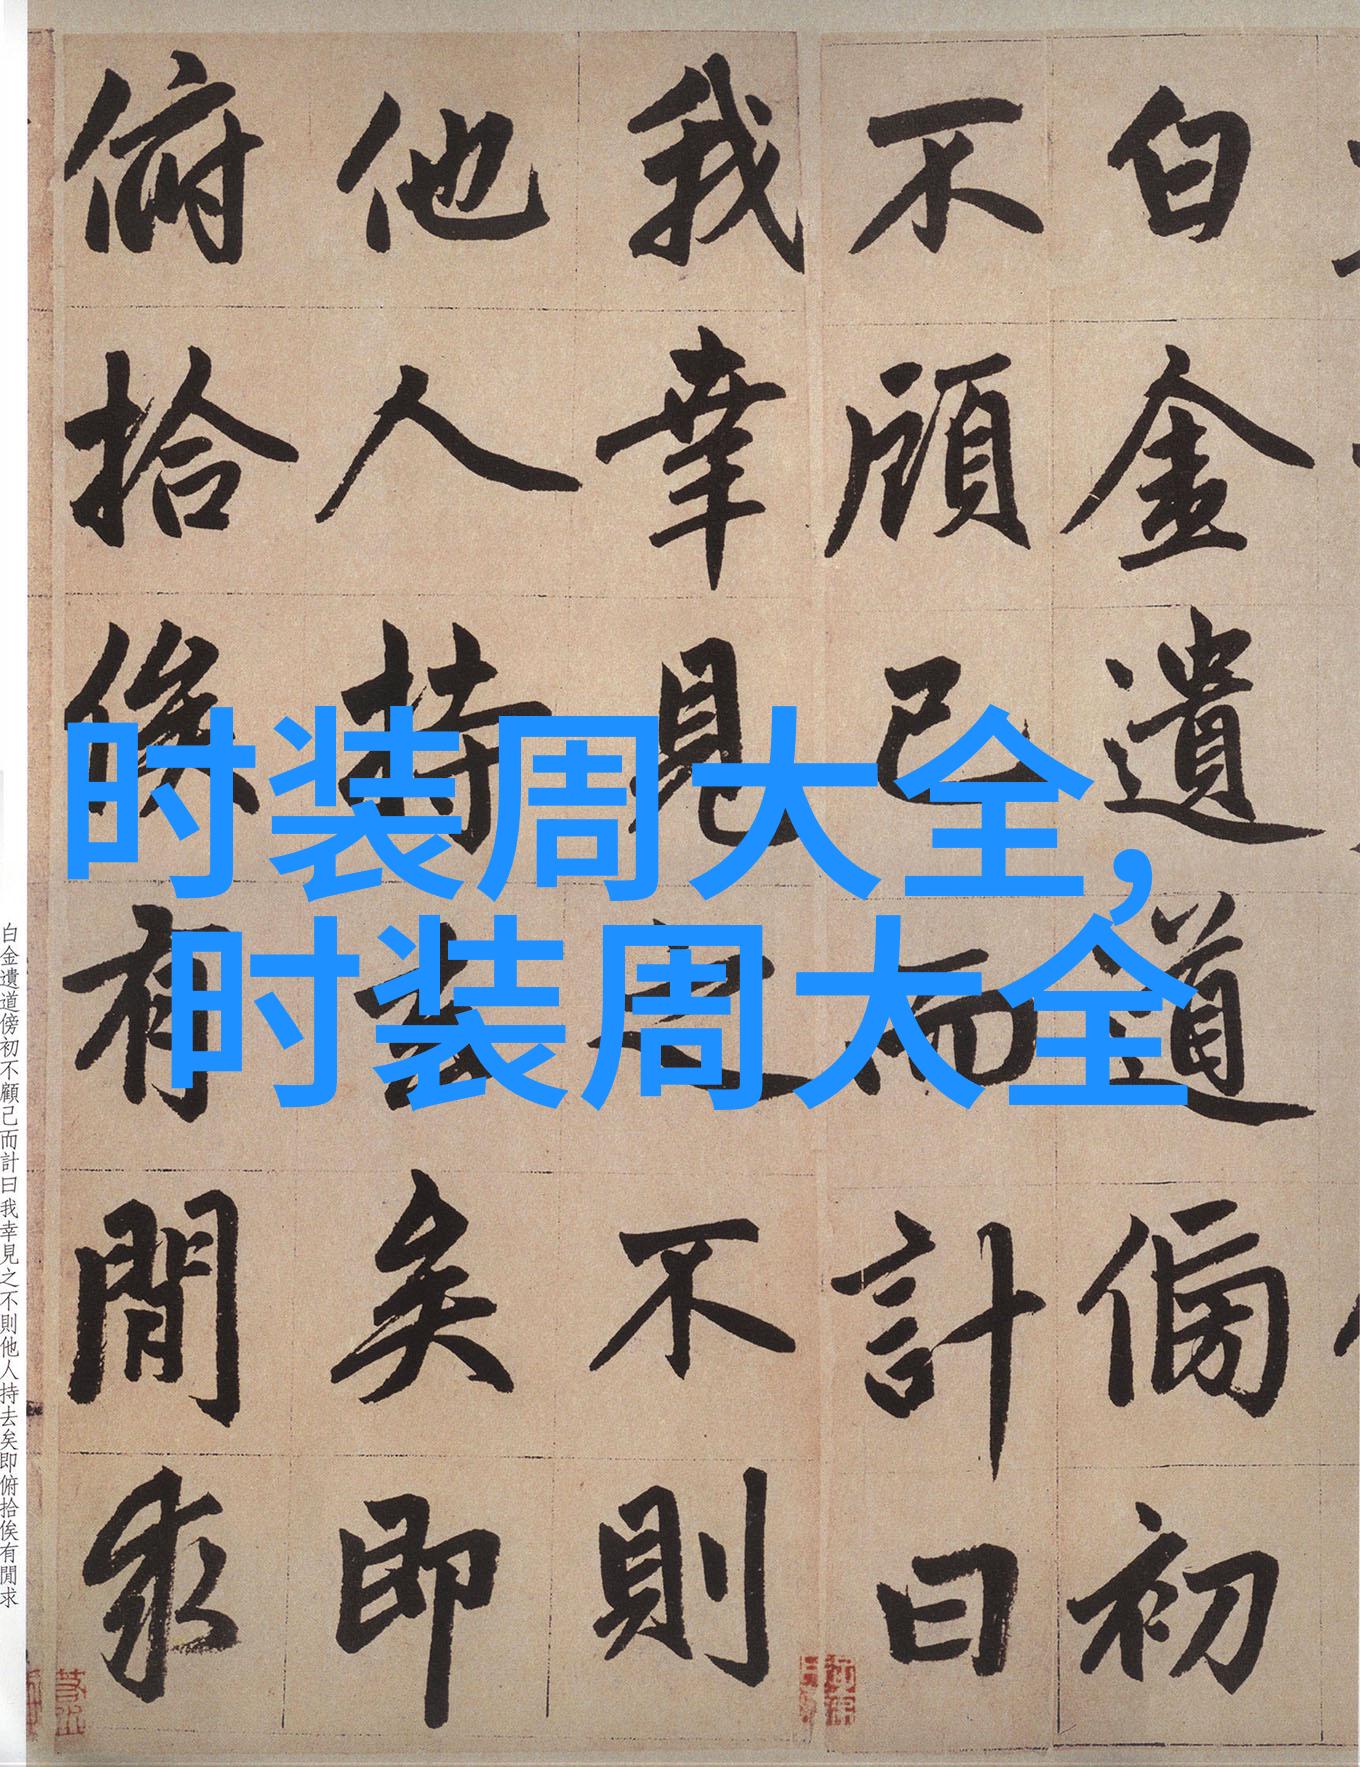 白金遺道傍初
不顧己而計曰
我幸見之不則
他人持去矣即
俯拾俟有閒求
时装周大全,
时装周大全
白金遺道傍初不顧己而計曰我幸見之不則他人持去矣即俯拾俟有閒求